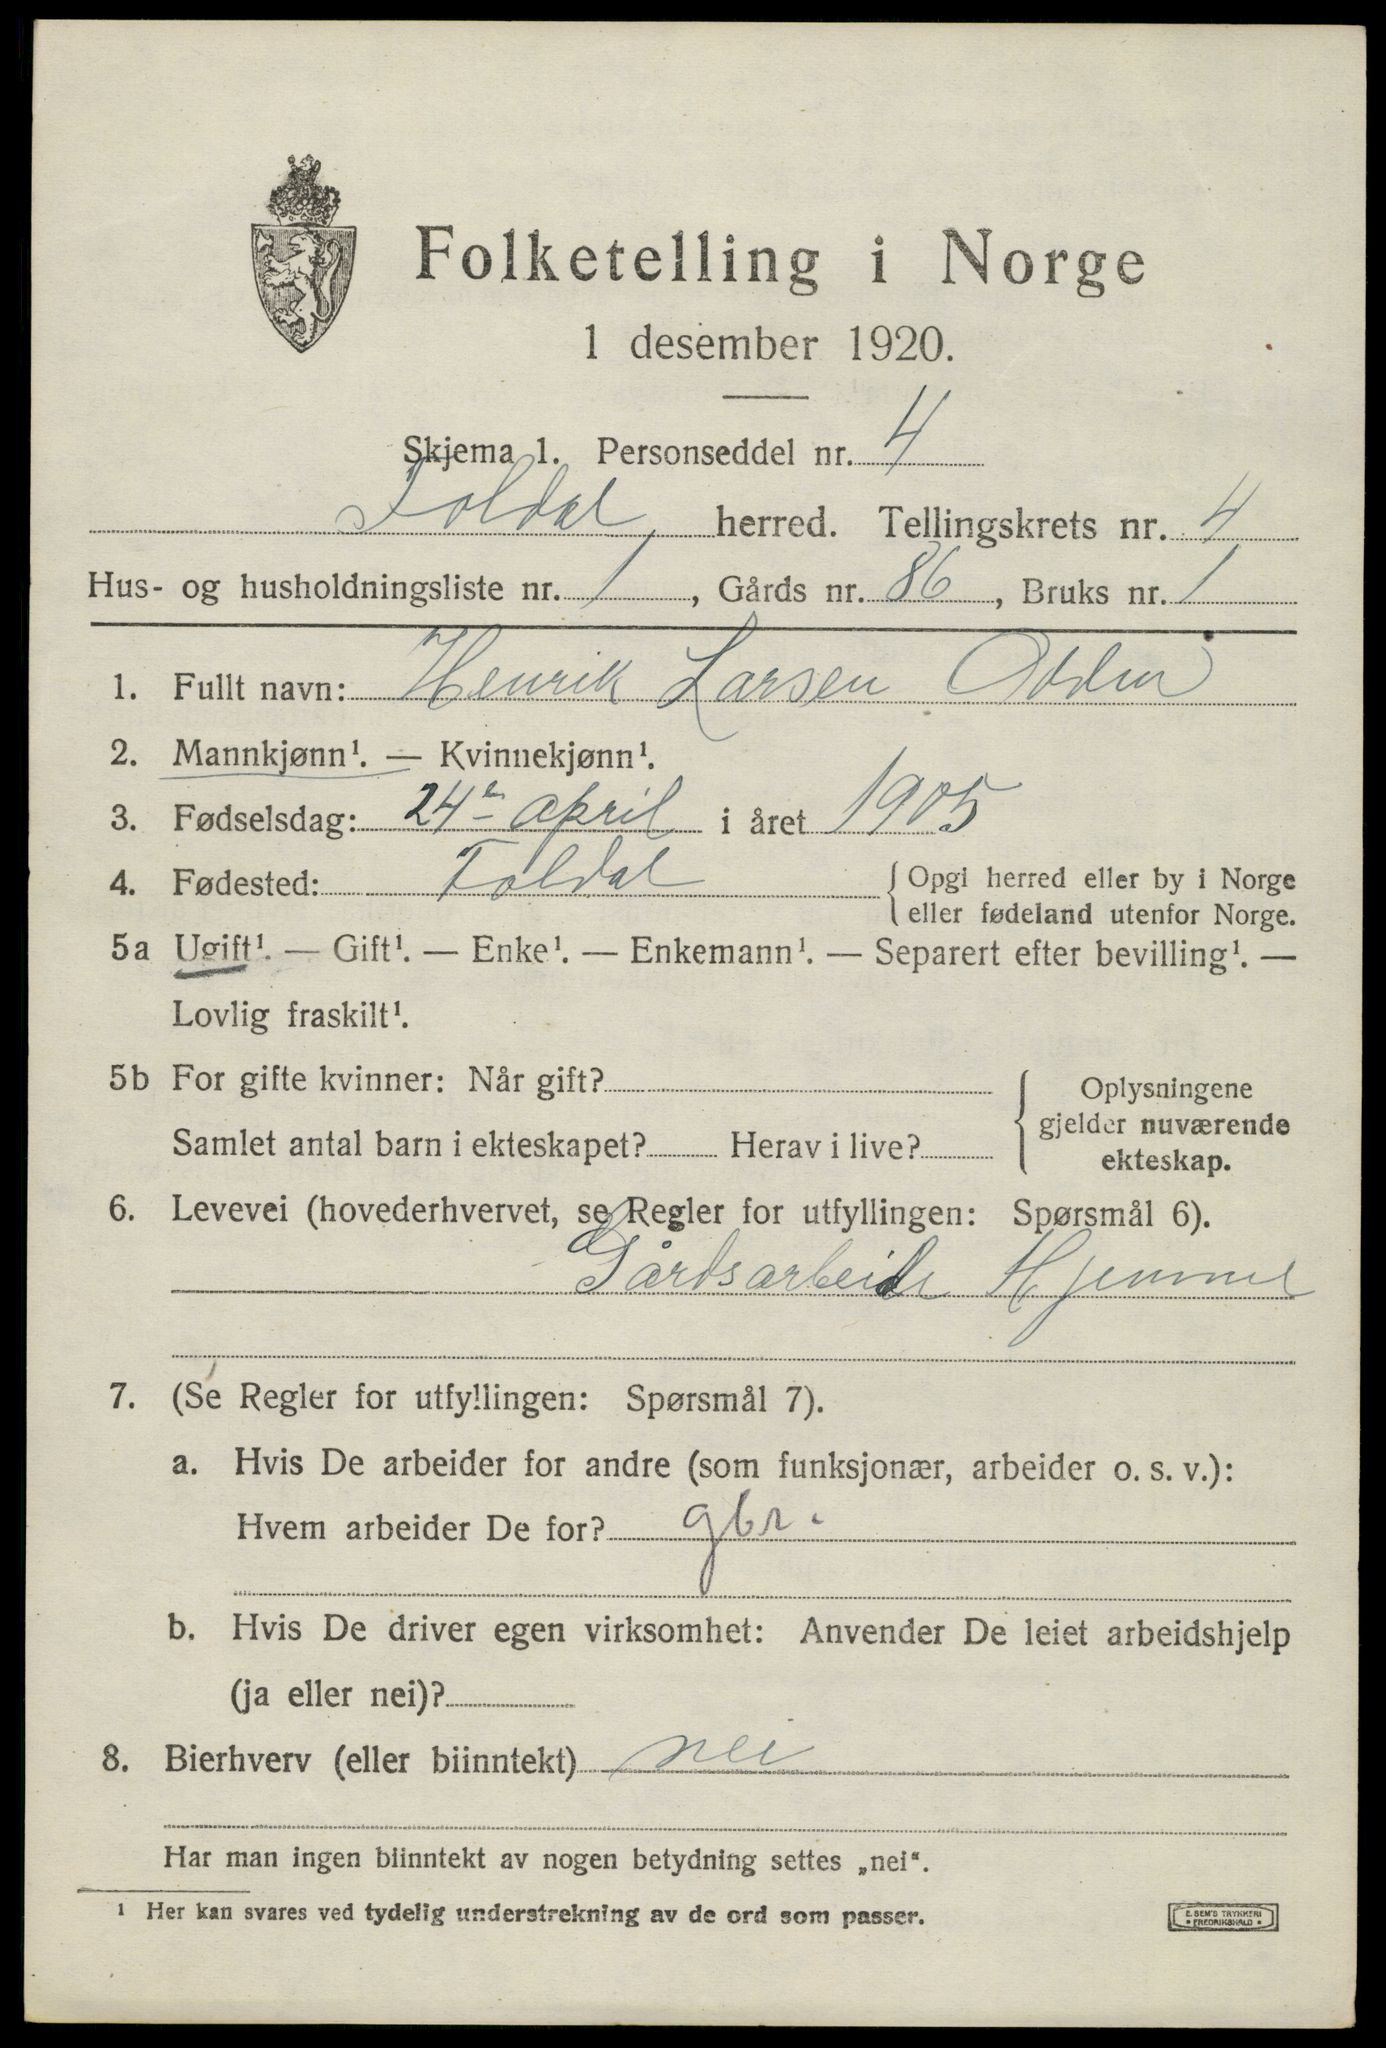 Folketelling i Norge
1 desember 1920.
Skjema 1. Personseddel nr. 4
Foldal herred. Tellingskrets nr. 4
Hus- og husholdningsliste nr. 1, Gårds nr. 86, Bruks nr. 1
1. Fullt navn: Henrik Larsen
2. Mannkjønn¹. — Kvinnekjønn¹.
3. Fødselsdag: 24 april i året 1905
4. Fødested: Foldal {Opgi herred eller by i Norge
eller fødeland utenfor Norge.
5a Ugift¹. — Gift¹. — Enke¹. — Enkemann¹. — Separert efter bevilling¹. —
Lovlig fraskilt¹.
5b For gifte kvinner: Når gift?
Samlet antal barn i ekteskapet? Herav i live?
{Oplysningene
gjelder nuværende
ekteskap.
6. Levevei (hovederhvervet, se Regler for utfyllingen: Spørsmål 6).
Gårdsarbeide Hjemme
7. (Se Regler for utfyllingen: Spørsmål 7).
a. Hvis De arbeider for andre (som funksjonær, arbeider o. s. v.):
Hvem arbeider De for? gbr.
b. Hvis De driver egen virksomhet: Anvender De leiet arbeidshjelp
(ja eller nei)?
8. Bierhverv (eller biinntekt) nei
Har man ingen biinntekt av nogen betydning settes „nei“.
¹ Her kan svares ved tydelig understrekning av de ord som passer.
E. SEM'S TRYKKERI
• FREDRIKSHALD •